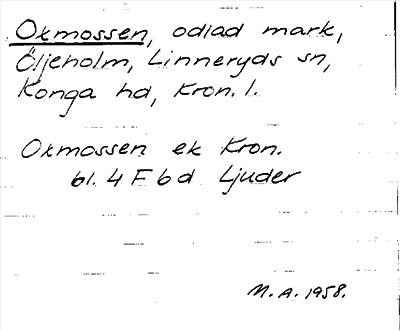 Oxmossen, odlad mark,
Öljeholm, Linneryds sn,
Konga hd, Kron. l.
Oxmossen ek Kron.
bl. 4 F b d Ljuder
M. A. 1958.